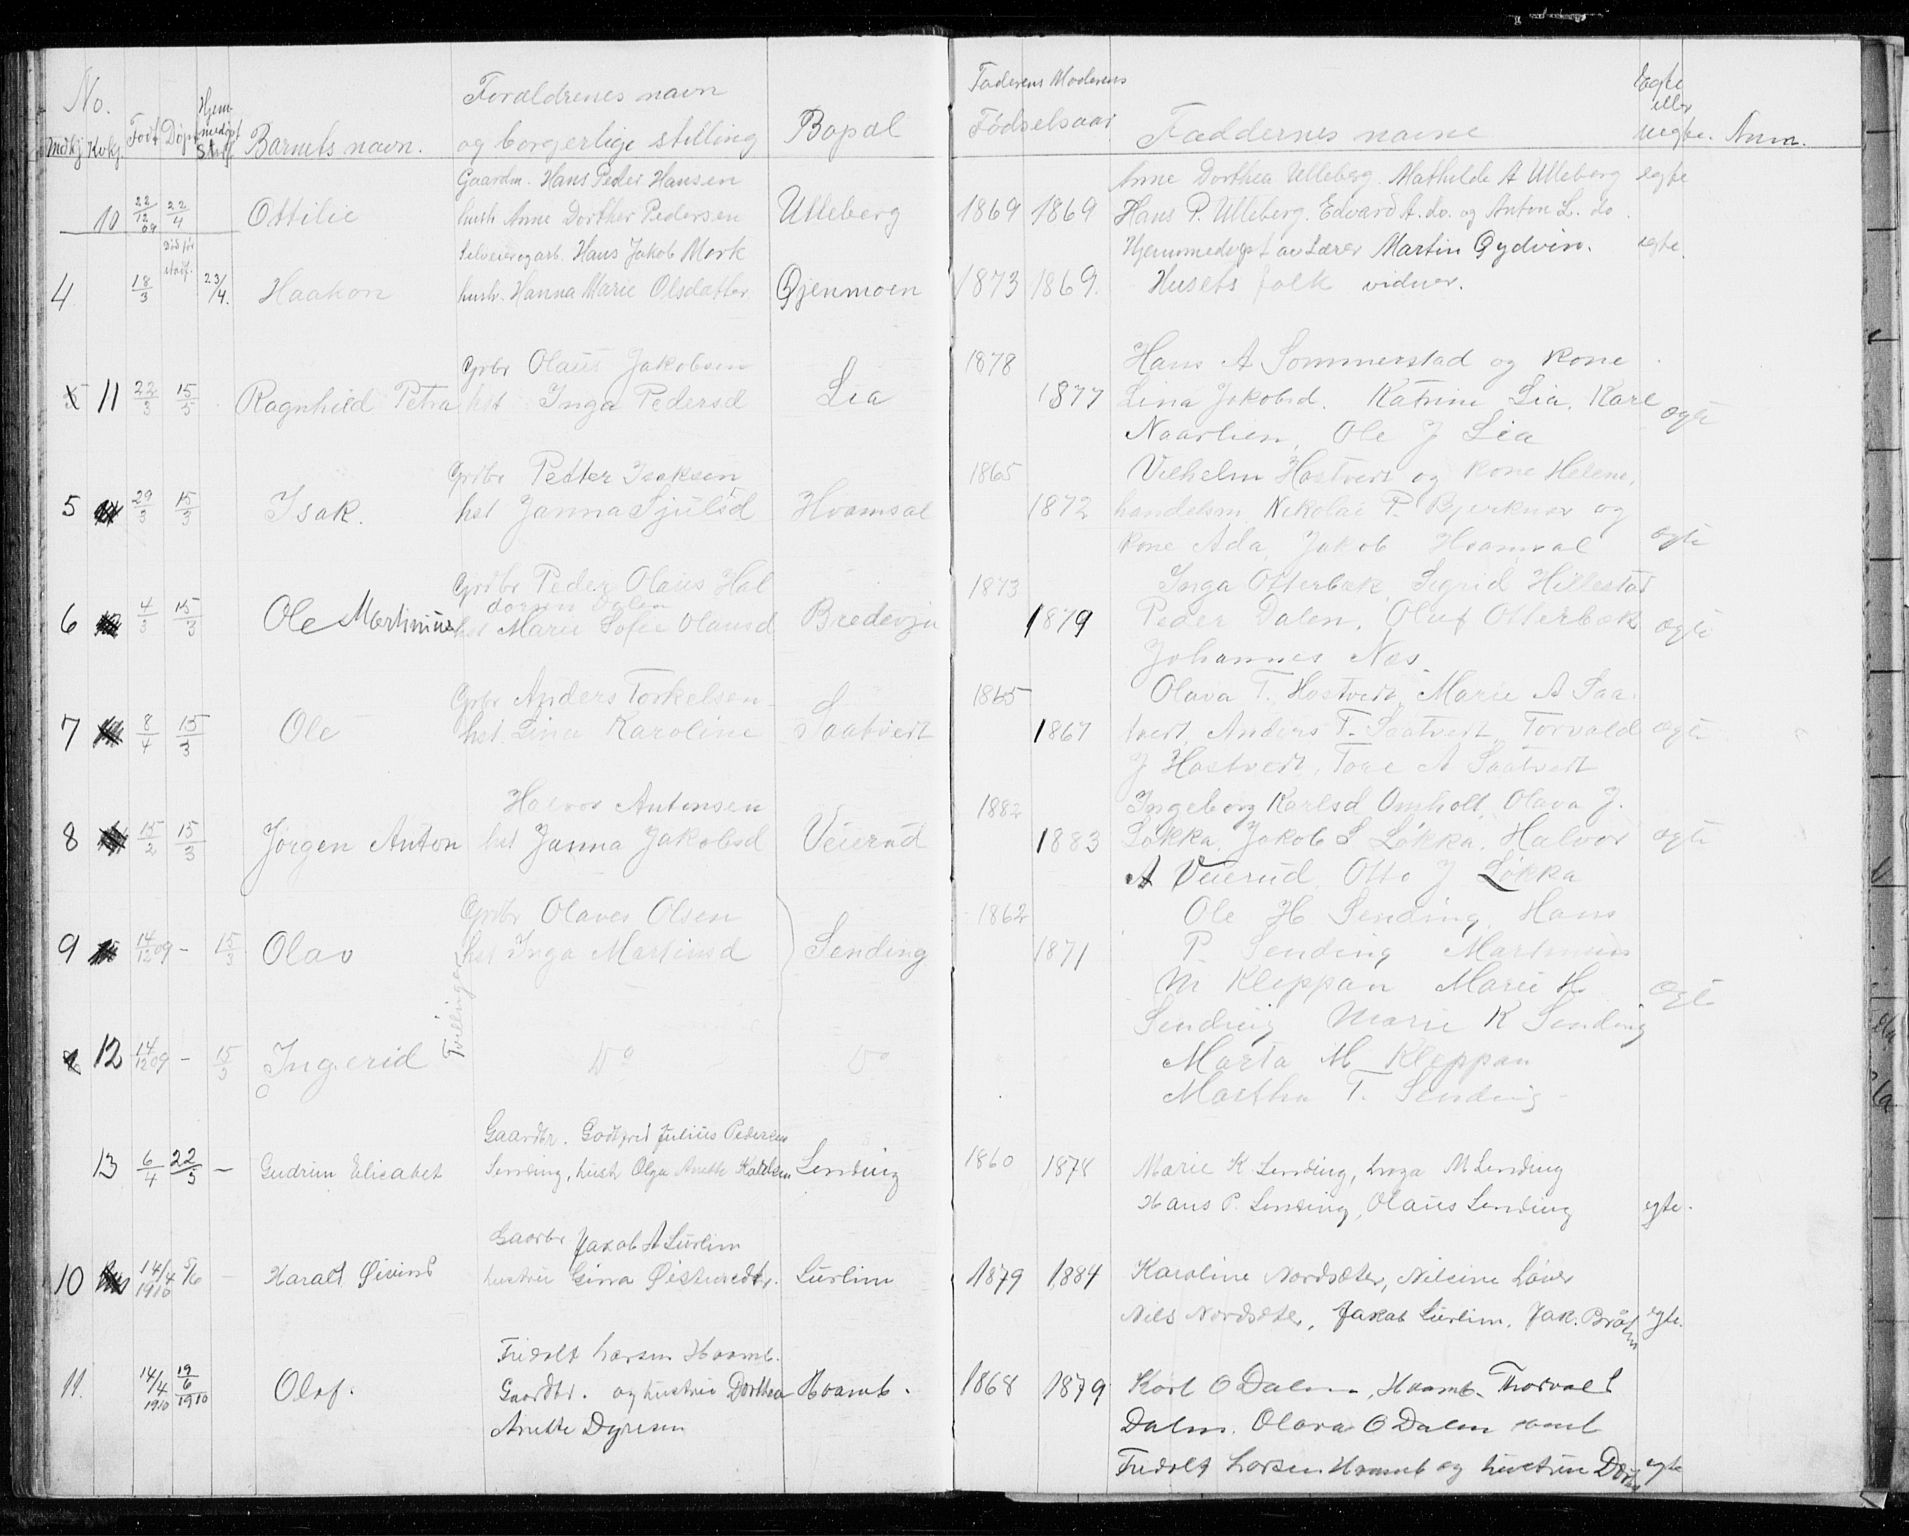 No. Født Døpt Hjemmedøpt Stdf Barnets navn. Forældrenes navn og borgerlige stilling Bopæl
Mdkj Kvkj
Faderens Moderens Fødselsaar Faddernes navne Egte eller Uegte. Anm.
Gaardm. Hans Peder Hansen
10 22/12 09 22/4 Ottilie hustr Anne Dorthea Pedersen Ulleberg
Selveier og arb. Hans Jakob Mork
4 18/3 23/4. Haakon hustr. Hanna Marie Olsdatter Gjenmoen
Grbr Olaus Jakobsen
5 11 22/3 15/5 Ragnhild Petra hst Inga Pedersd Lia
Grdbr Petter Isaksen
5 29/3 15/3 Isak. hst Janna Sjulsd Hvamsal
Grdbr Peder Olaus Hal
dorsen Dalen
6 4/3 15/3 Ole Martinius hst Marie Sofie Olausd Bredevju
Grbr Anders Torkelsen
7 8/4 15/3 Ole hst Lina Karoline Saatvedt
Halvor Antonsen
8 15/2 15/3 Jörgen Anton hst Janna Jakobsd Veierud
Grdbr Olaves Olsen
9 14/12 09 - 15/3 Olav hst Inga Martinsd Sending
Tvillinger
12 14/12 09 - 15/3 Ingerid Do Do
Gaardbr. Godtfred Julius Pedersen
13 6/4 22/5 - Gudrun Elisabet Sending, hustr Olga Anette Sending
Gaardbr Jakob A Lurlim
10 14/4 1910 5/6 - Harald Øivind hustru Gina Lurlim
Fridolf Larsen Hvamb.
11. 14/4 1910 19/6 1910 Olaf. Gaardbr. og hustru Dorthea Hvamb.
Anette Dyresen
Anne Dorthea Ulleberg. Mathilde A Ulleberg egte
1869 1869 Hans P. Ulleberg. Edvard A. do. og Anton L. do.
Hjemmedøpt av Lærer Martin Gydvin. egte.
1873 1869. Husets folk vidner.
1878 Hans A Sommerstad og kone
1877 Lina Jakobsd. Katrine Lia, Karl ægte
Naarlien, Ole J Lia
1865 Vilhelm Hastvedt og kone Helene,
1872 handelsm Nikolai P. Bjerknes og
kone Ada, Jakob Hvamsal ægte
1873 Inga Otterbæk, Sigrid Hillestad
1879 Peder Dalen, Oluf Otterbæk ægte
Johannes Næs.
1865 Olava T. Hastvedt, Marie A Saa
1867 tvedt, Anders T. Saatvedt Torvald ægte
J Hastvedt, Tone A Saatvedt
1882 Ingeborg Karlsd Omholt, Olava J.
1883 Løkka, Jakob S Løkka, Halvor ægte
A Veierud, Otto J Løkka
1862 Ole H Sending, Hans
1871 P. Sending Martinius
M Kleppan Marie H ægte
Sending Marie K Sending
Marta M Kleppan
Martha T. Sending
1860 1878 Marie K. Sending, Inga M Sending
Hans P. Sending, Olaus Sending egte.
1879 1884 Karoline Nordsæter, Nilsine
Nils Nordsæter, Jakob Lurlim, Jak. egte.
1868 1879 Karl O Dalen, Hvamb. Thorvald
Dalen. Olava O Dalen samt
Fridolf Larsen Hvamb og hustru egte